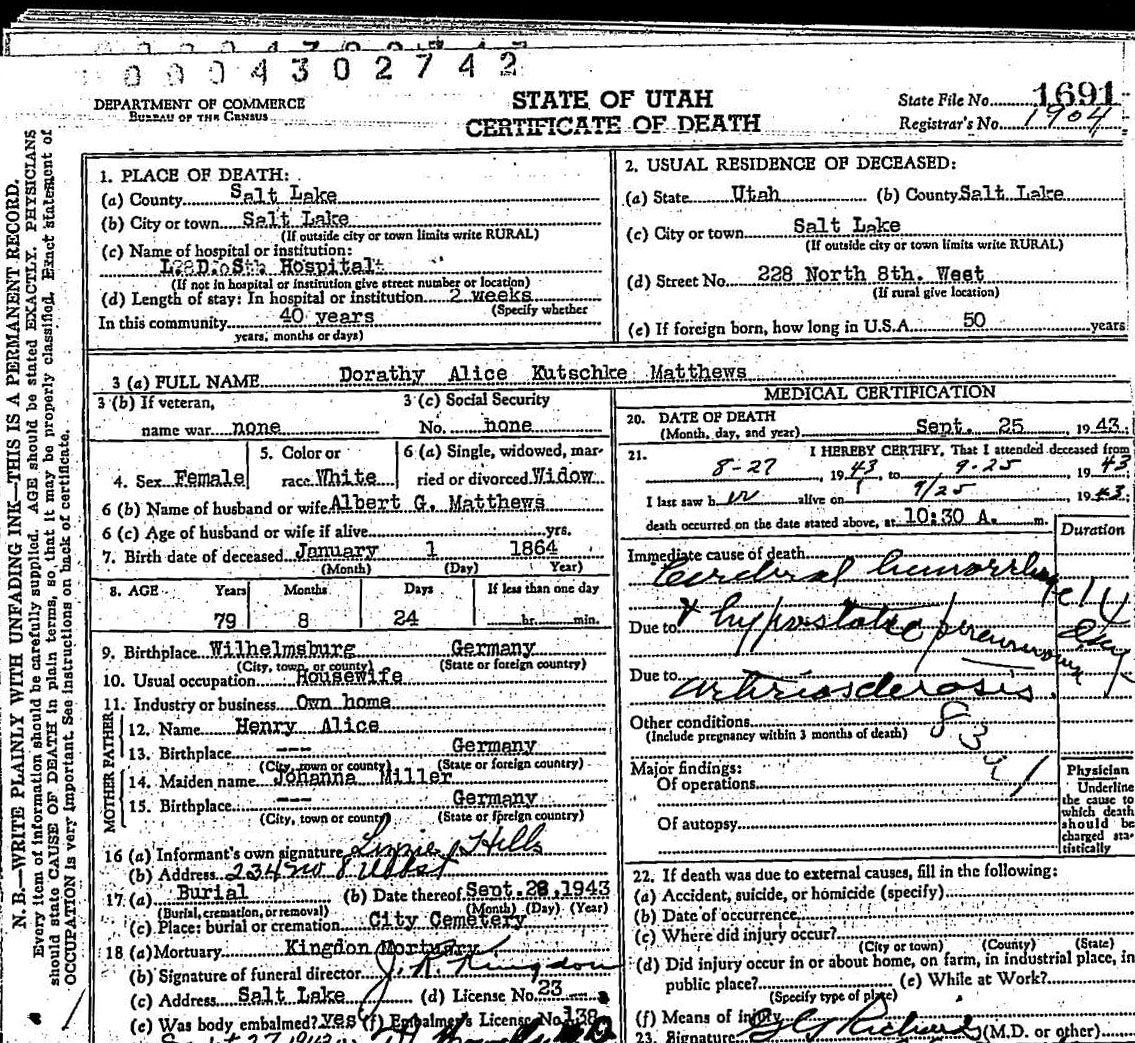 0004302742
DEPARTMENT OF COMMERCE
BUREAU OF THE CENSUS
STATE OF UTAH
CERTIFICATE OF DEATH
State File No. 1691
Registrar's No. 1904
N. B.—WRITE PLAINLY WITH UNFADING INK—THIS IS A PERMANENT RECORD.
Every item of information should be carefully supplied. AGE should be stated EXACTLY. PHYSICIANS
should state CAUSE OF DEATH in plain terms, so that it may be properly classified. Exact statement of
OCCUPATION is very important. See instructions on back of certificate.
1. PLACE OF DEATH:
(a) County Salt Lake
(b) City or town Salt Lake
(If outside city or town limits write RURAL)
(c) Name of hospital or institution:
L.D.S. Hospital
(If not in hospital or institution give street number or location)
(d) Length of stay: In hospital or institution 2 weeks
(Specify whether
In this community 40 years
years, months or days)
2. USUAL RESIDENCE OF DECEASED:
(a) State Utah (b) County Salt Lake
(c) City or town Salt Lake
(If outside city or town limits write RURAL)
(d) Street No. 228 North 8th. West
(If rural give location)
(e) If foreign born, how long in U.S.A. 50 years
3 (a) FULL NAME Dorathy Alice Kutschke Matthews
3 (b) If veteran,
name war none
3 (c) Social Security
No. none
4. Sex Female
5. Color or
race White
6 (a) Single, widowed, mar-
ried or divorced Widow
6 (b) Name of husband or wife Albert G. Matthews
6 (c) Age of husband or wife if alive yrs.
7. Birth date of deceased January 1 1864
(Month) (Day) Year)
8. AGE Years Months Days If less than one day
79 8 24 hr. min.
9. Birthplace Wilhelmsburg Germany
(City, town, or county) (State or foreign country)
10. Usual occupation Housewife
11. Industry or business Own home
FATHER
12. Name Henry Alice
13. Birthplace --- Germany
(City, town or county) (State or foreign country)
MOTHER
14. Maiden name Johanna Miller
15. Birthplace --- Germany
(City, town or county) (State or foreign country)
16 (a) Informant's own signature Lizzie Hills
(b) Address 234 no 8 West
17. (a) Burial (b) Date thereof Sept. 28, 1943
(Burial, cremation, or removal) (Month) (Day) (Year)
(c) Place: burial or cremation City Cemetery
18 (a) Mortuary Kingdon Mortuary
(b) Signature of funeral director J. R. Kingdon
(c) Address Salt Lake (d) License No. 23
(e) Was body embalmed? yes (f) Embalmer's License No. 138
Sept 27 1943
MEDICAL CERTIFICATION
20. DATE OF DEATH
(Month, day, and year) Sept. 25, 1943.
21. I HEREBY CERTIFY, That I attended deceased from
8-27, 1943, to 9-25 1943
I last saw h er alive on 9/25 1943
death occurred on the date stated above, at 10:30 A. m.
Duration
Immediate cause of death
Cerebral hemorrhage
Due to & hypostatic pneumonia
Due to arteriosclerosis
Other conditions
(Include pregnancy within 3 months of death)
83
Major findings:
Of operations
Of autopsy
Physician
Underline
the cause to
which death
should be
charged sta-
tistically
22. If death was due to external causes, fill in the following:
(a) Accident, suicide, or homicide (specify)
(b) Date of occurrence
(c) Where did injury occur?
(City or town) (County) (State)
(d) Did injury occur in or about home, on farm, in industrial place, in
public place? (e) While at Work?
(Specify type of place)
(f) Means of injury
23. Signature G. G. Richards (M.D. or other)